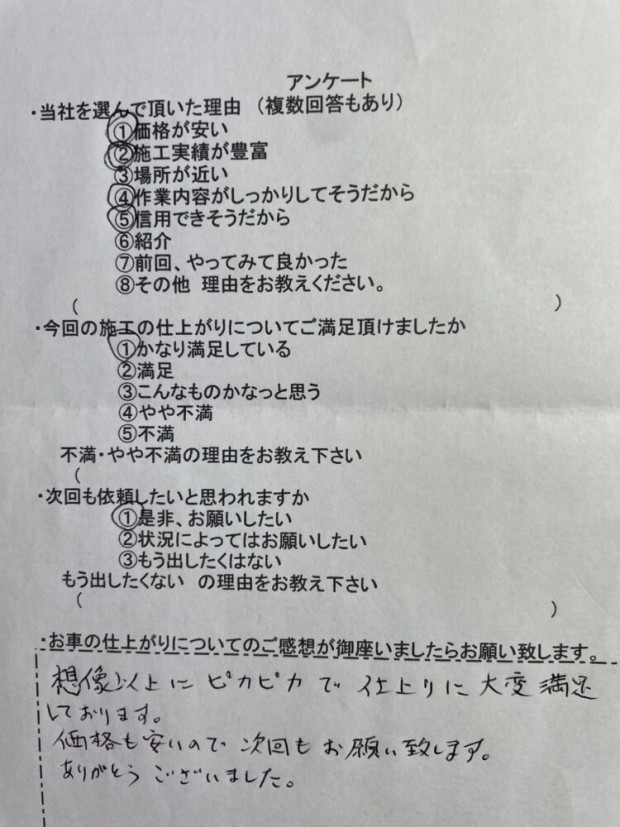 アンケート
・当社を選んで頂いた理由 （複数回答もあり）
①価格が安い
②施工実績が豊富
③場所が近い
④作業内容がしっかりしてそうだから
⑤信用できそうだから
⑥紹介
⑦前回、やってみて良かった
⑧その他 理由をお教えください。
（ ）
・今回の施工の仕上がりについてご満足頂けましたか
①かなり満足している
②満足
③こんなものかなっと思う
④やや不満
⑤不満
不満・やや不満の理由をお教え下さい
（
・次回も依頼したいと思われますか
①是非、お願いしたい
②状況によってはお願いしたい
③もう出したくはない
もう出したくない の理由をお教え下さい
（ ）
・お車の仕上がりについてのご感想が御座いましたらお願い致します。
想像以上に ピカピカで 仕上りに 大変 満足
しております。
価格も安いので 次回も お願い致します。
ありがとう ございました。